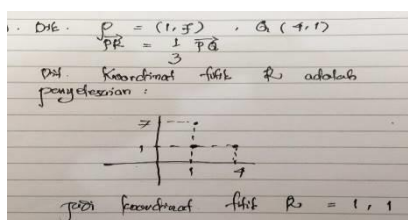 . Dik. P = (1, 7) . Q (4, 1)
PR = 1/3 PQ
Dit. Koordinat titik R adalah
penyelesaian :
7
1
1 4
Jadi koordinat titik R = 1, 1